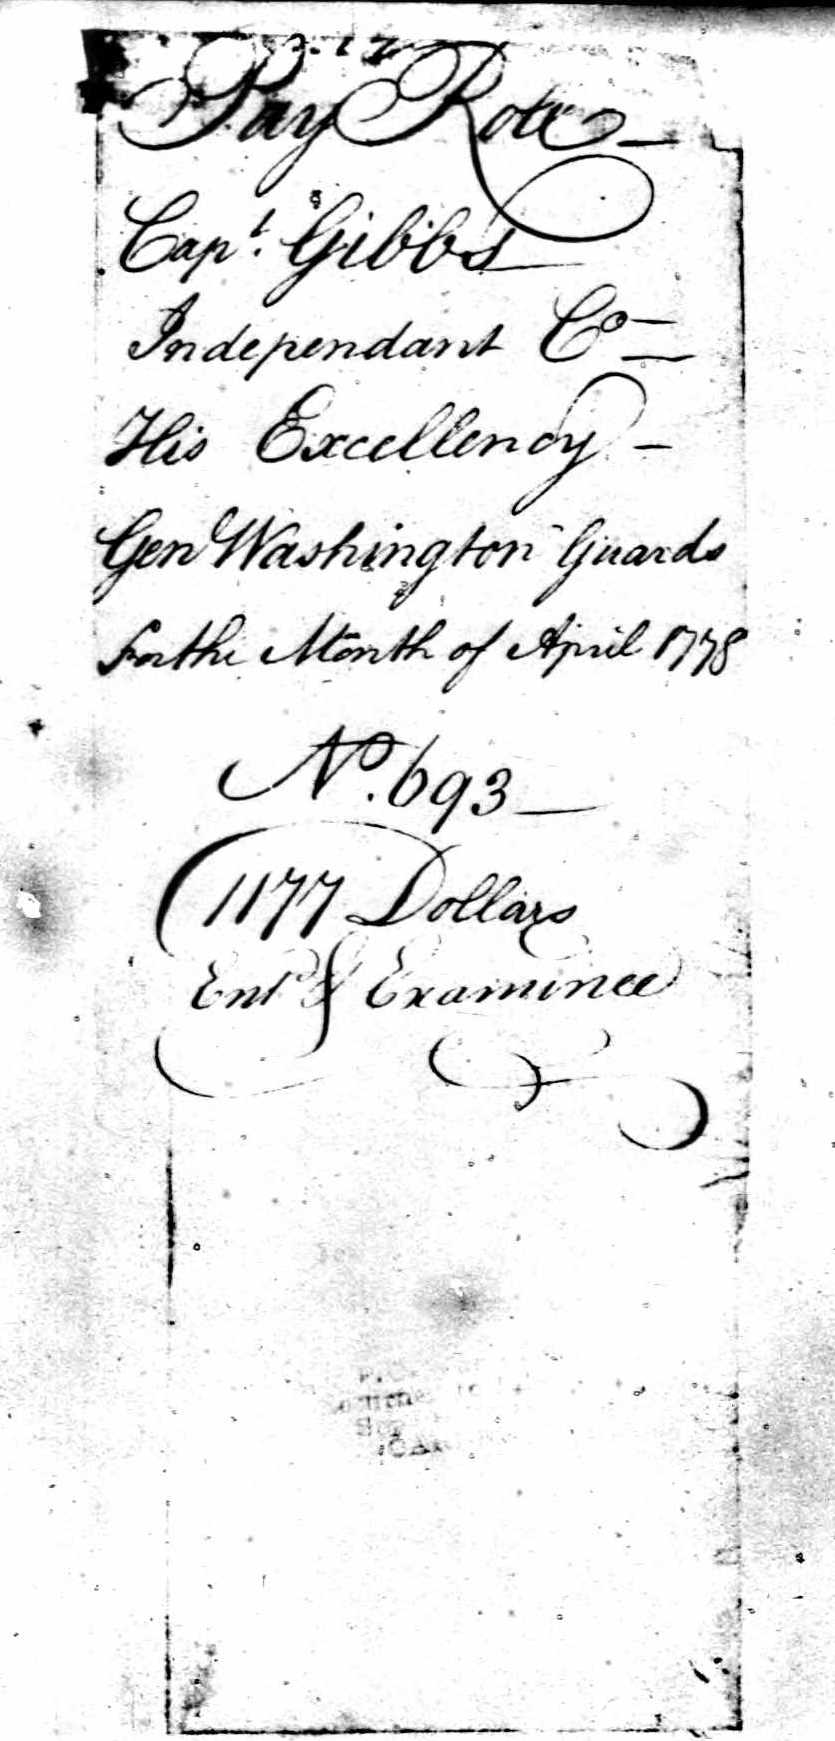 Pay Role
Capt. Gibbs
Independant Co
His Excellency
Gen Washington Guards
For the Month of April 1778
No. 693
1177 Dollars
Entd & Examined